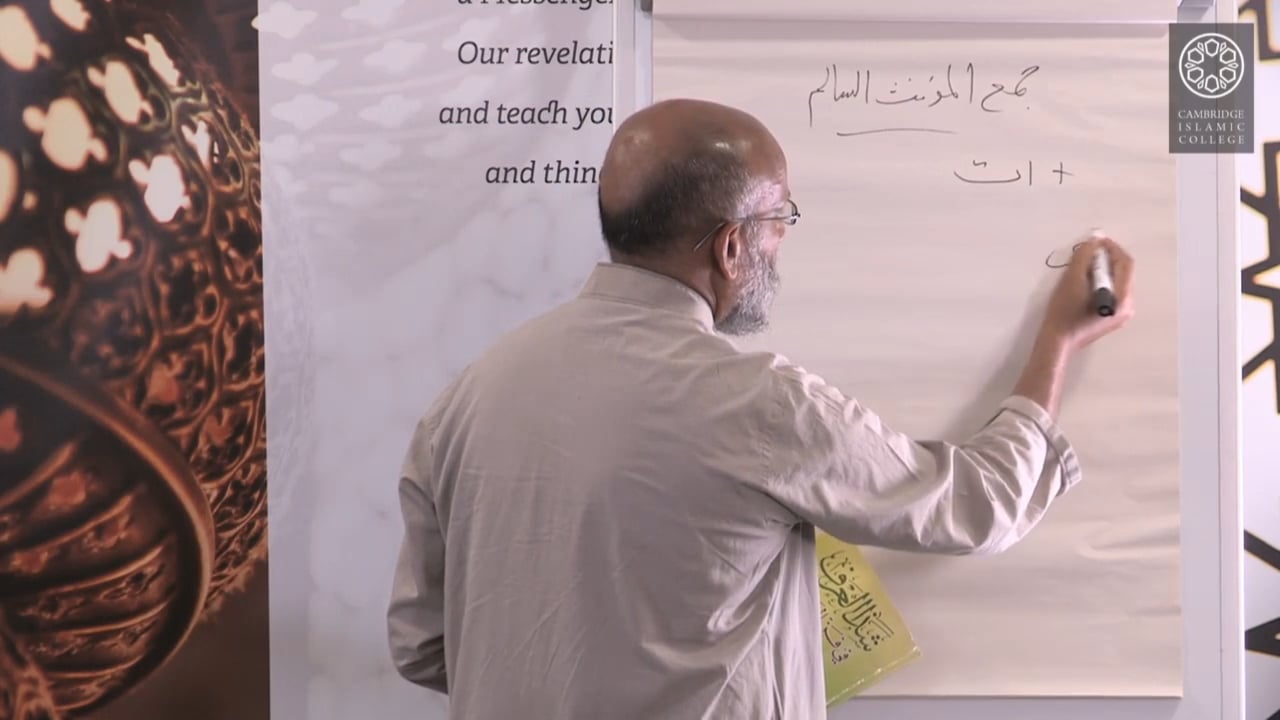 a Messenger
Our revelati
and teach you
and thin
جمع المؤنث السالم
+ ات
CAMBRIDGE
ISLAMIC
COLLEGE
شذا العرف